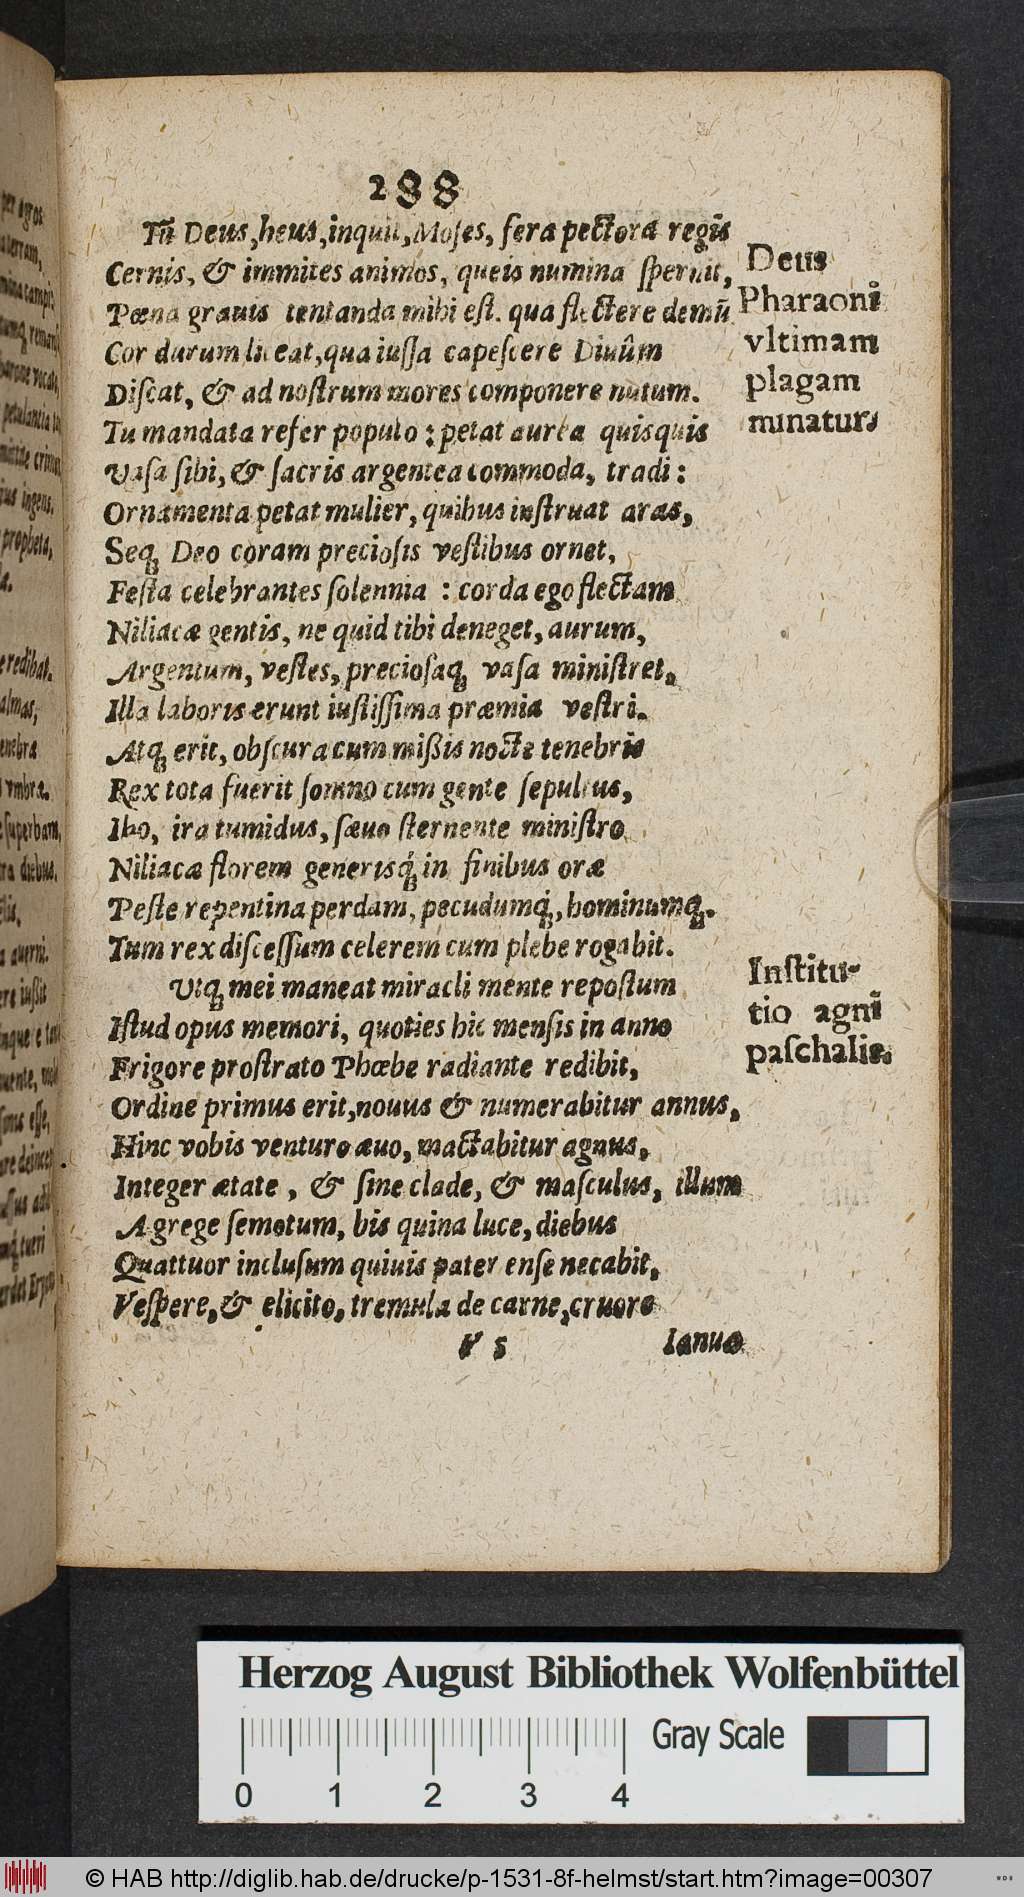 288
Tũ Deus, heus, inquit, Moses, fera pectora regis
Cernis, & immites animos, queis numina spernit,
Pœna grauis tentanda mihi est. qua flectere demũ
Cor durum liceat, qua iussa capescere Diuûm
Discat, & ad nostrum mores componere nutum.
Tu mandata refer populo: petat aurea quisquis
Vasa sibi, & sacris argentea commoda, tradi:
Ornamenta petat mulier, quibus instruat aras,
Seq; Deo coram preciosis vestibus ornet,
Festa celebrantes solennia : corda ego flectam
Niliacæ gentis, ne quid tibi deneget, aurum,
Argentum, vestes, preciosaq; vasa ministret.
Illa laboris erunt iustissima præmia vestri.
Atq; erit, obscura cum mißis nocte tenebris
Rex tota fuerit somno cum gente sepultus,
Ibo, ira tumidus, sæuo sternente ministro
Niliacæ florem generisq́; in finibus oræ
Peste repentina perdam, pecudumq́;, hominumq;.
Tum rex discessum celerem cum plebe rogabit.
Vtq; mei maneat miracli mente repostum
Istud opus memori, quoties hic mensis in anno
Frigore prostrato Phœbe radiante redibit,
Ordine primus erit, nouus & numerabitur annus,
Hinc vobis venturo æuo, mactabitur agnus,
Integer ætate, & sine clade, & masculus, illum
A grege semotum, bis quina luce, diebus
Quattuor inclusum quiuis pater ense necabit,
Vespere, & elicito, tremula de carne, cruore
V 5 Ianuæ
Deus
Pharaoni
vltimam
plagam
minatur.
Institu-
tio agni
paschalis.
per agros
redibat.
almas,
vmbræ.
superbam,
diebus.
auerni.
iußit
esse,
tueri
Herzog August Bibliothek Wolfenbüttel
Gray Scale
0 1 2 3 4
© HAB http://diglib.hab.de/drucke/p-1531-8f-helmst/start.htm?image=00307